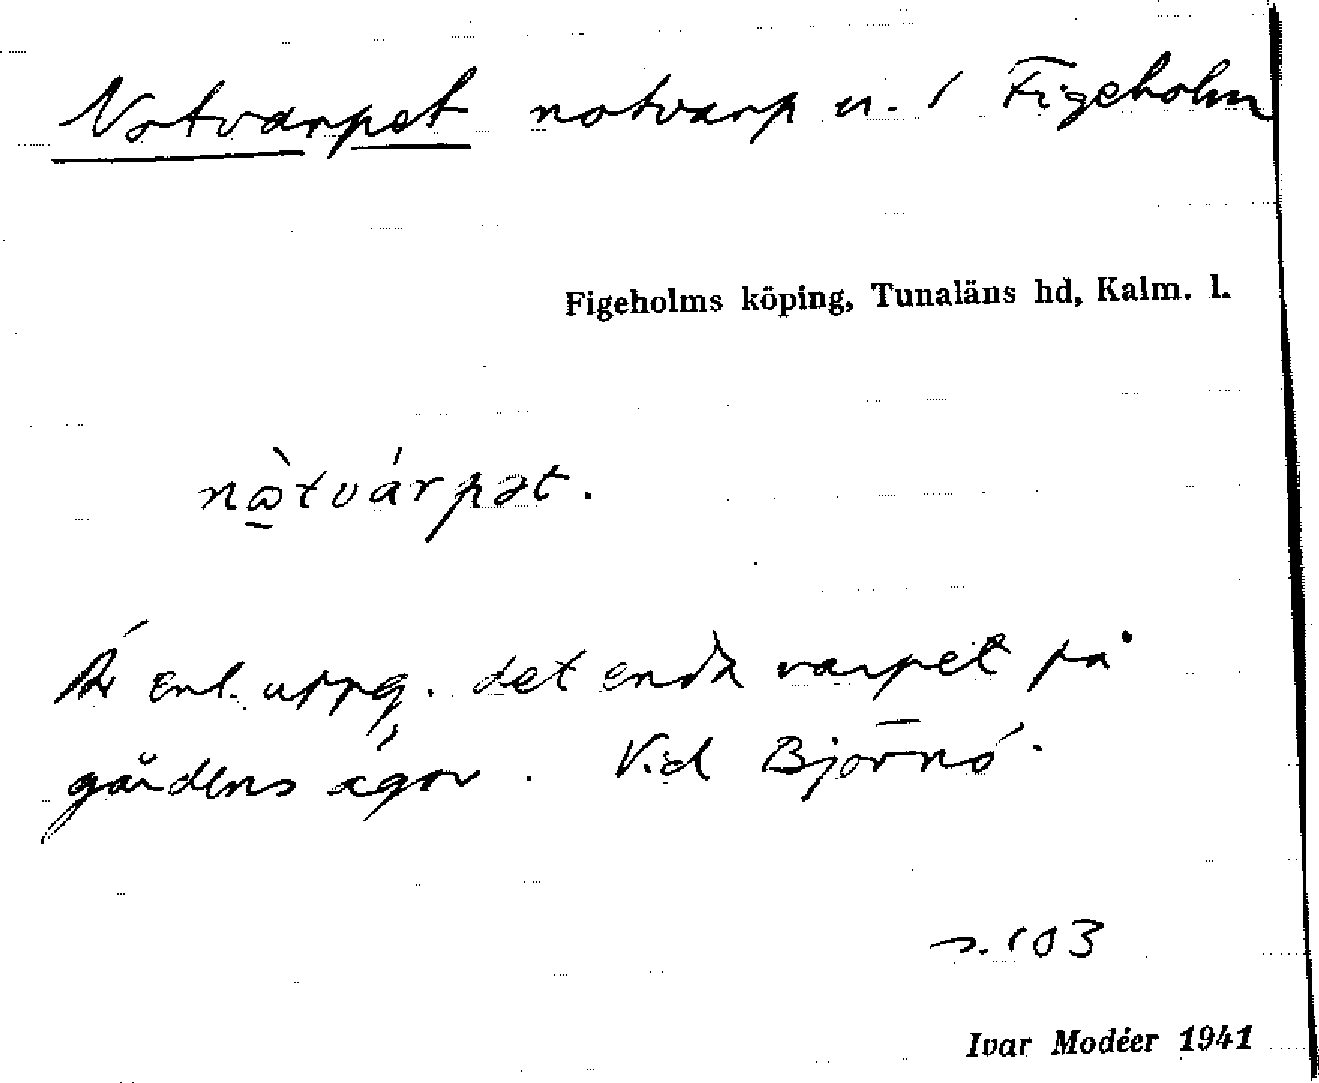 Notvarpet notvarp u. 1 Figeholm
Figeholms köping, Tunaläns hd, Kalm. l.
nòtvárpət.
Är enl. uppg. det enda varpet på
gårdens ägor. Vid Björnö.
s. 103
Ivar Modéer 1941